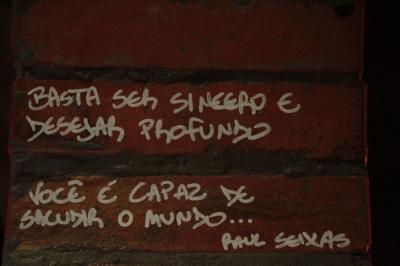 BASTA SER SINCERO E
DESEJAR PROFUNDO
VOCÊ É CAPAZ DE
SACUDIR O MUNDO...
RAUL SEIXAS